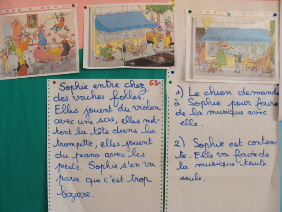 Sophie entre chez
des vaches folles.
Elles jouent du violon
avec une scie, elles met-
tent la tête dans la
trompette, elles jouent
du piano avec les
pieds. Sophie s'en va
parce que c'est trop
bizarre.
1) Le chien demande
à Sophie pour faire
de la musique avec
elle.
2) Sophie est conten-
te. Elle va faire de
la musique toute
seule.